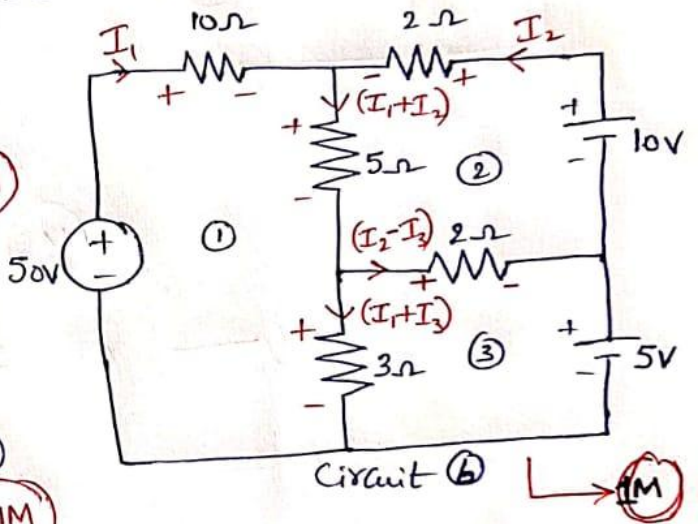 I₁ 10Ω 2Ω I₂
+ - - +
(I₁+I₂)
+ 5Ω ② + 10V
- -
① (I₂-I₃) 2Ω
+ 50V - + -
(I₁+I₃)
+ 3Ω ③ + 5V
- -
Circuit ⓑ 1M
1M